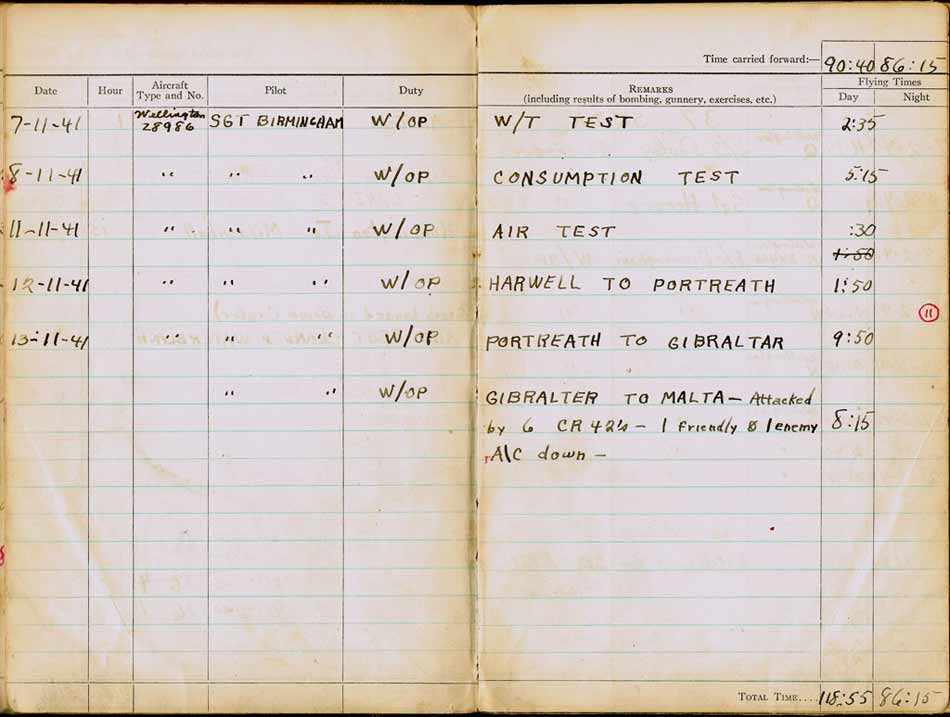 Time carried forward:— 90:40 86:15
Date Hour Aircraft Type and No. Pilot Duty REMARKS (including results of bombing, gunnery, exercises, etc.) Flying Times Day Night
7-11-41 Wellington 28986 SGT BIRMINGHAM W/OP W/T TEST 2:35
8-11-41 " " " W/OP CONSUMPTION TEST 5:15
11-11-41 " " " W/OP AIR TEST :30
1:50
12-11-41 " " " W/OP HARWELL TO PORTREATH 1:50
11
13-11-41 " " " W/OP PORTREATH TO GIBRALTAR 9:50
" " W/OP GIBRALTER TO MALTA — Attacked
by 6 CR 42's — 1 friendly & 1 enemy 8:15
A\C down —
TOTAL TIME.... 118:55 86:15